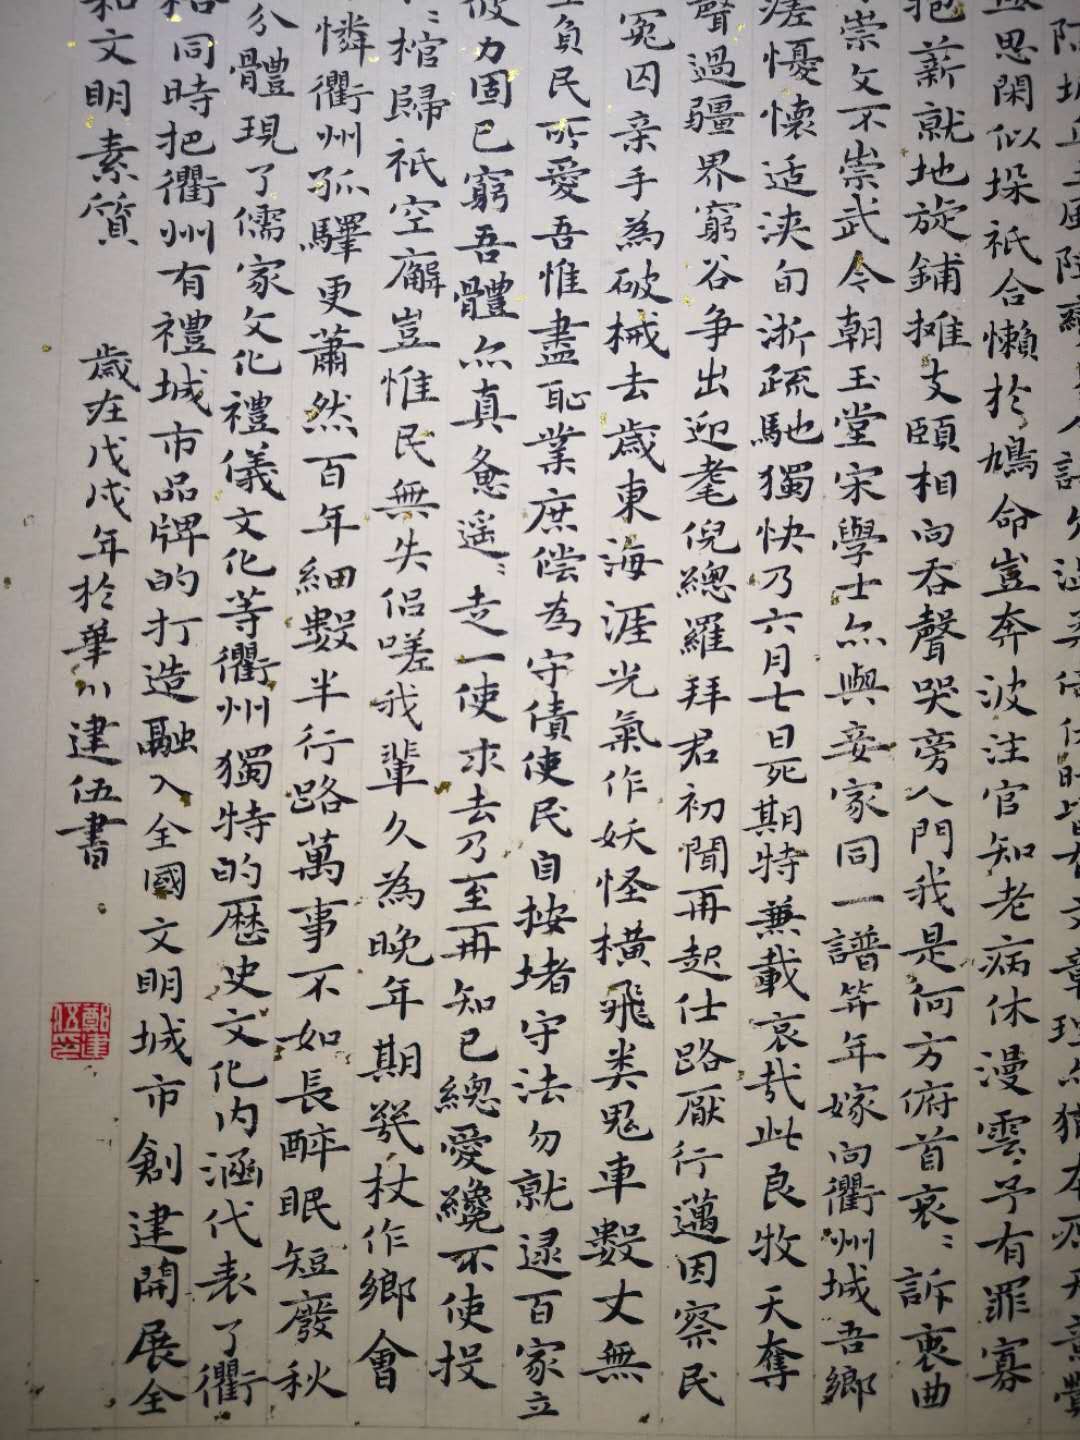 思閑似垛祇合懶於鳩命豈奔波注官知老病休漫雲予有罪寡
抱薪就地旋鋪攤支頤相向吞聲哭旁人門我是何方俯首哀〻訴衷曲
崇文不崇武令朝玉堂宋學士亦與妾家同一譜笄年嫁向衢州城吾鄉
憂懷适浹旬浙疏馳獨快乃六月七日死期特兼載哀哉此良牧天奪
聲過疆界窮谷爭出迎耄倪總羅拜君初聞再起仕路厭行邁因察民
冤囚亲手為破械去歲東海涯光氣作妖怪橫飛类鬼車數丈無
負民所愛吾惟盡恥業庶偿為守債使民自按堵守法勿就逮百家立
力固已窮吾體亦真惫遥〻走一使求去乃至再知已總愛纔不使投
〻棺歸祇空廨豈惟民無失侣嗟我輩久為晚年期凳杖作鄉會
憐衢州孤驛更蕭然百年細數半行路萬事不如長醉眠短廢秋
分體現了儒家文化禮儀文化等衢州獨特的歷史文化内涵代表了衢
同時把衢州有禮城市品牌的打造融入全國文明城市創建開展全
和文明素質 歲在戊戌年於華川建伍書
鄭建伍印